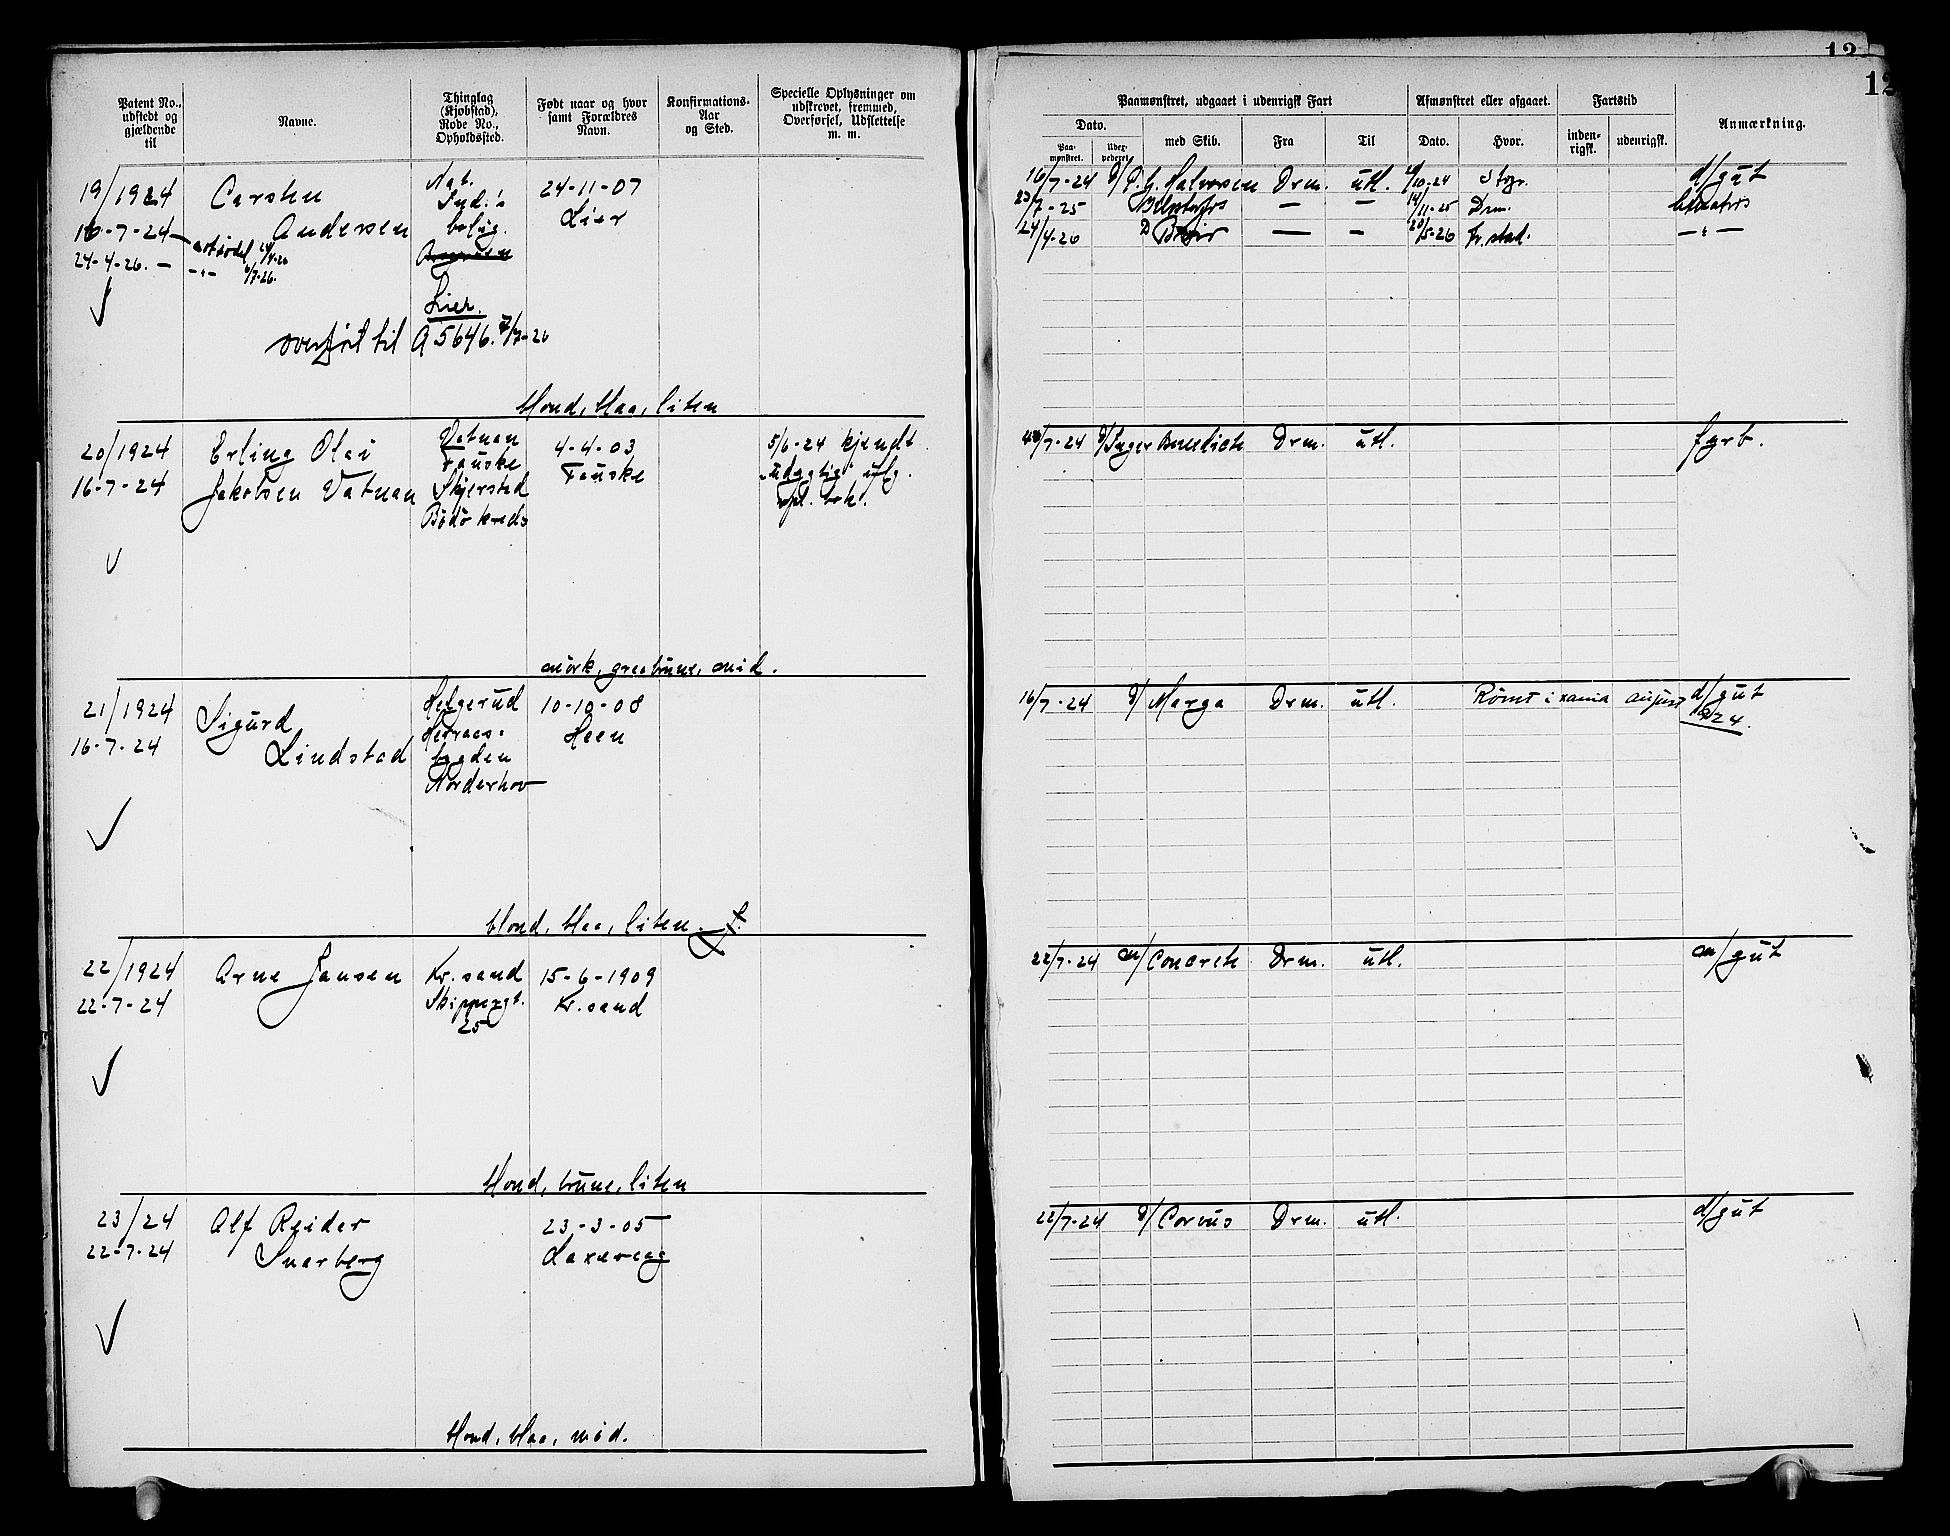 Patent No.,
udstedt og
gjældende
til
Navne.
Thinglag
(Kjøbstad),
Rode No.,
Opholdssted.
Født naar og hvor
samt Forældres
Navn.
Konfirmations-
Aar
og Sted.
Specielle Oplysninger om
udskrevet, fremmed,
Overførsel, Udslettelse
m. m.
19/1924
16-7-24
24-4-26. —
Carsten
Andersen
Lier.
24-11-07
Lier
overført til A 5646. 7/7-26
blond, blaa, liten
20/1924
16-7-24
Erling Olai
Jakobsen Vatnan
Vatnan
Fauske
Skjerstad
Bodö kreds
4-4-03
Fauske
5/6-24 kjendt
"udygtig" ifg.
opl. bok.
mörk, graabrune, mid.
21/1924
16-7-24
Sigurd
Lindstad
Helgerud
Heraas-
bygden
Norderhov
10-10-08
Heen
blond, blaa, liten.
22/1924
22-7-24
Arne Jansen
Kr.sand
Skippergt.
25
15-6-1909
Kr.sand
blond, brune, liten
23/24
22-7-24
Alf Reider
Snarberg
23-3-05
Laxevaag
blond, blaa, mid.
13
12
Paamønstret, udgaaet i udenrigsk Fart
Afmønstret eller afgaaet.
Fartstid
Anmærkning.
Dato.
Paa-
mønstret.
med Skib.
Fra
Til
Dato.
Hvor.
inden-
rigsk.
udenrigsk.
16/7-24 D/ P. G. Halvorsen Drm. utl. /10-24 d/gut
23/7-25 — — 14/11-25 Drm.
24/4-26 D — — 20/5-26 Fr.stad. — " —
/7-24 D/ Inger Benedicte Drm. utl. fyrb.
16/7-24 D/ Marga Drm. utl. Rømt i august d/gut
1924.
22/7-24 m/ Concrete Drm. utl. m/gut
22/7-24 D/ Corvus Drm. utl. d/gut